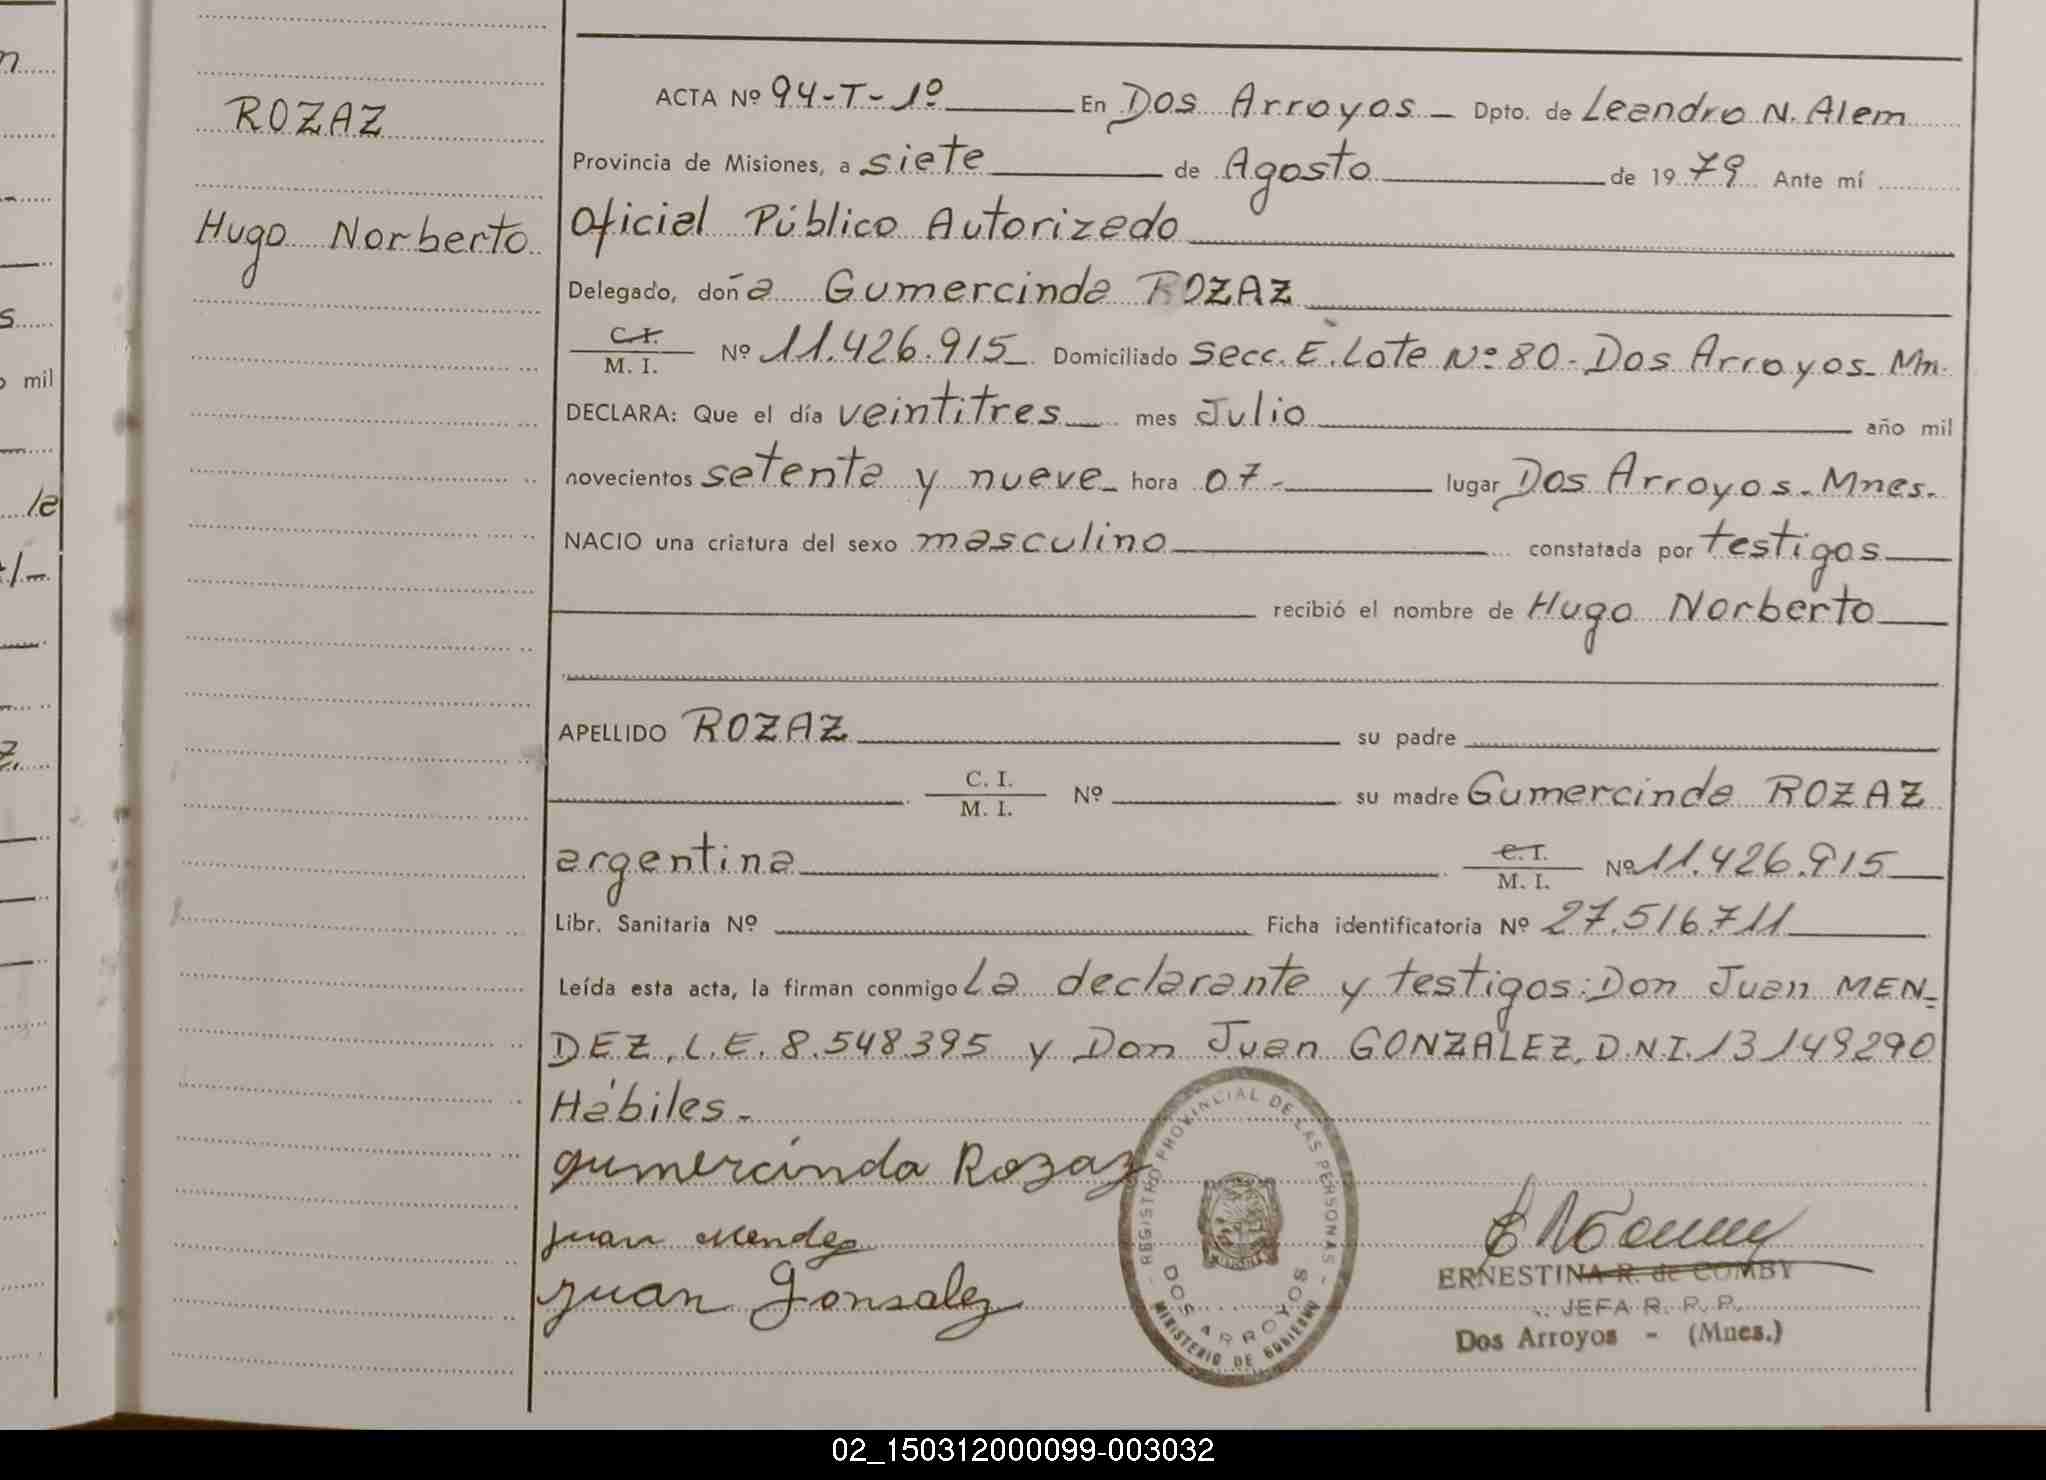 ROZAZ
Hugo Norberto
ACTA Nº 94-T-1º En Dos Arroyos - Dpto. de Leandro N. Alem
Provincia de Misiones, a siete de Agosto de 1979 Ante mí
Oficial Público Autorizado
Delegado, doña Gumercinda ROZAZ
C.I. / M. I. Nº 11.426.915 Domiciliado Secc. E. Lote Nº 80 - Dos Arroyos - Mn.
DECLARA: Que el día veintitres mes Julio año mil
novecientos setenta y nueve hora 07 - lugar Dos Arroyos - Mnes.
NACIO una criatura del sexo masculino constatada por testigos
recibió el nombre de Hugo Norberto
APELLIDO ROZAZ su padre
C. I. / M. I. Nº su madre Gumercinda ROZAZ
argentina C.I. / M. I. Nº 11.426.915
Libr. Sanitaria Nº Ficha identificatoria Nº 27.516.711
Leída esta acta, la firman conmigo La declarante y testigos: Don Juan MEN-
DEZ, L.E. 8.548.395 y Don Juan GONZALEZ, D.N.I. 13149290
Hábiles -
gumercinda Rozaz
juan Mendez
juan Gonsalez
REGISTRO PROVINCIAL DE LAS PERSONAS
DOS ARROYOS
MINISTERIO DE GOBIERNO
ERNESTINA R. de COMBY
JEFA R. P. P.
Dos Arroyos - (Mnes.)
le
mil
02_150312000099-003032